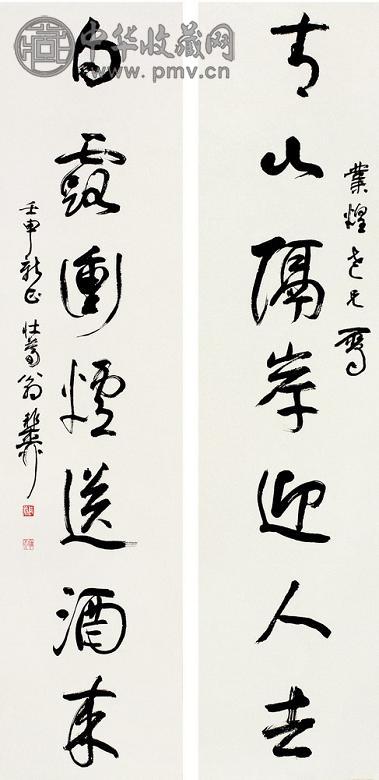 青山隔岸迎人去
業煌老兄屬
白露衝煙送酒来
壬申新正壯暮翁稚柳
中华收藏网
www.pmv.cn